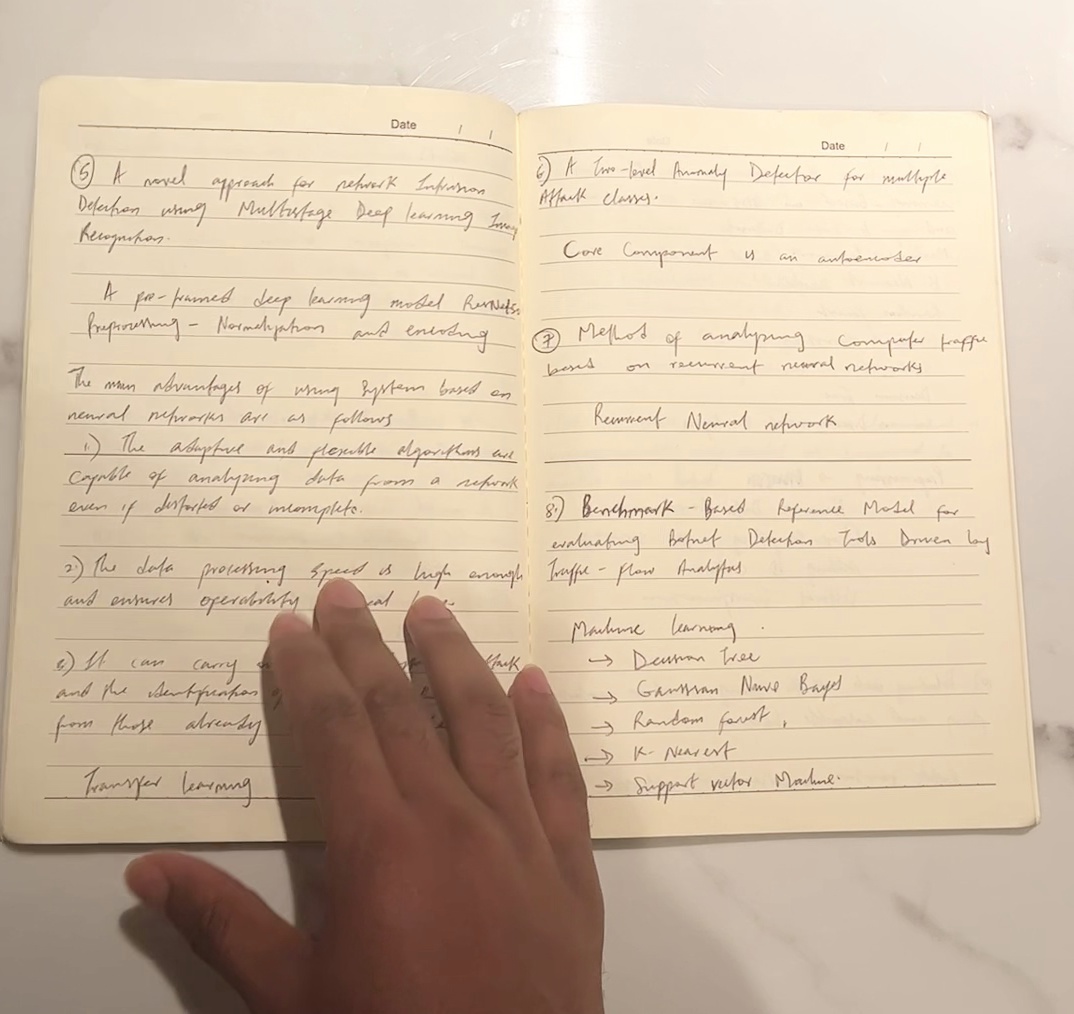 Date / /
⑤ A novel approach for network Intrusion
Detection using Multistage Deep learning Image
Recognition.
A pre-trained deep learning model ResNets
Preprocessing - Normalization and encoding
The main advantages of using System based on
neural networks are as follows
1.) The adaptive and flexible algorithms are
capable of analyzing data from a network
even if distorted or incomplete.
2.) The data processing speed is high enough
and ensures operability
) It can carry
and the identification
from those already
Transfer learning
Date / /
6) A Two-level Anomaly Detector for multiple
Attack classes.
Core Component is an autoencoder
⑦ Method of analyzing computer traffic
based on recurrent neural networks
Recurrent Neural network
8.) Benchmark - Based Reference Model for
evaluating Botnet Detection Tools Driven by
Traffic - Flow Analytics
Machine learning.
→ Decision Tree
→ Gaussian Naive Bayes
→ Random forest,
→ K-Nearest
→ Support vector Machine.